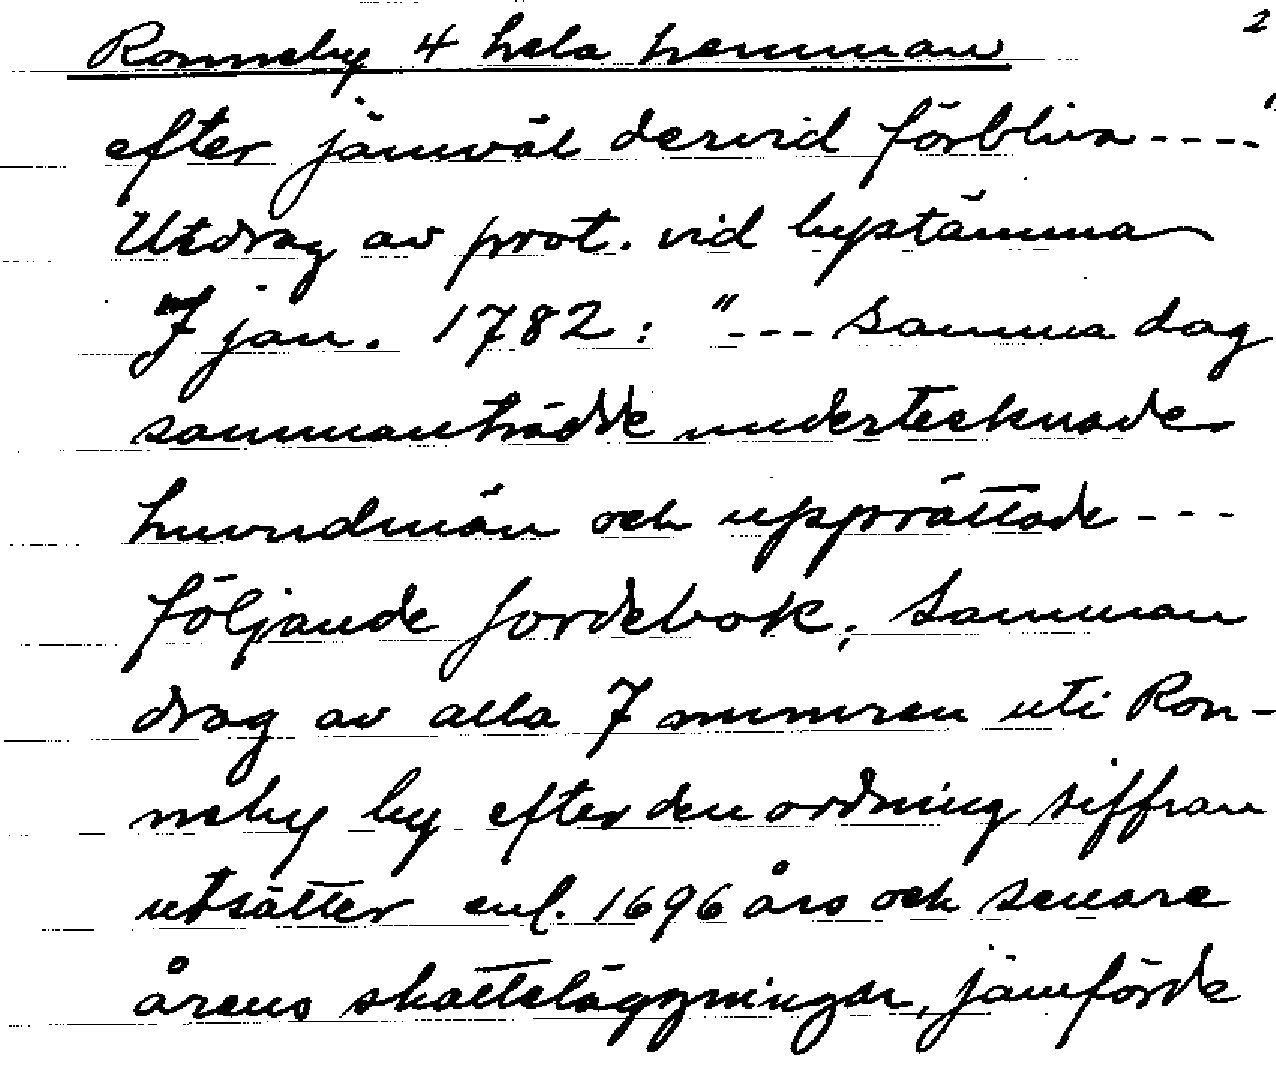 Ronneby 4 hela hemman 2
efter jämväl dervid förbliva ----"
Utdrag av prot. vid bystämma
7 jan. 1782 : "--- Samma dag
sammanträdde undertecknade
huvudmän och upprättade ---
följande Jordebok; Samman
drag av alla 7 numren uti Ron-
neby by efter den ordning siffran
utsätter enl. 1696 års och senare
årens skatteläggningar, jämförde